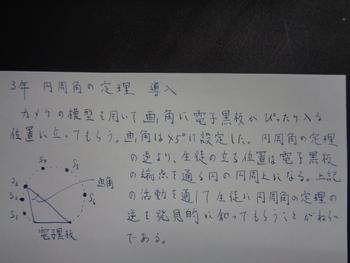 3年 円周角の定理 導入
カメラの模型を用いて画角に電子黒板がぴったり入る
位置に立ってもらう。画角は45°に設定した。円周角の定理
の逆より、生徒の立る位置は電子黒板
の端点を通る円の円周上になる。上記
の活動を通して生徒に円周角の定理の
逆を発見的に知ってもらうことがねらい
である。
画角
S₃
S₂
S₁
電子黒板